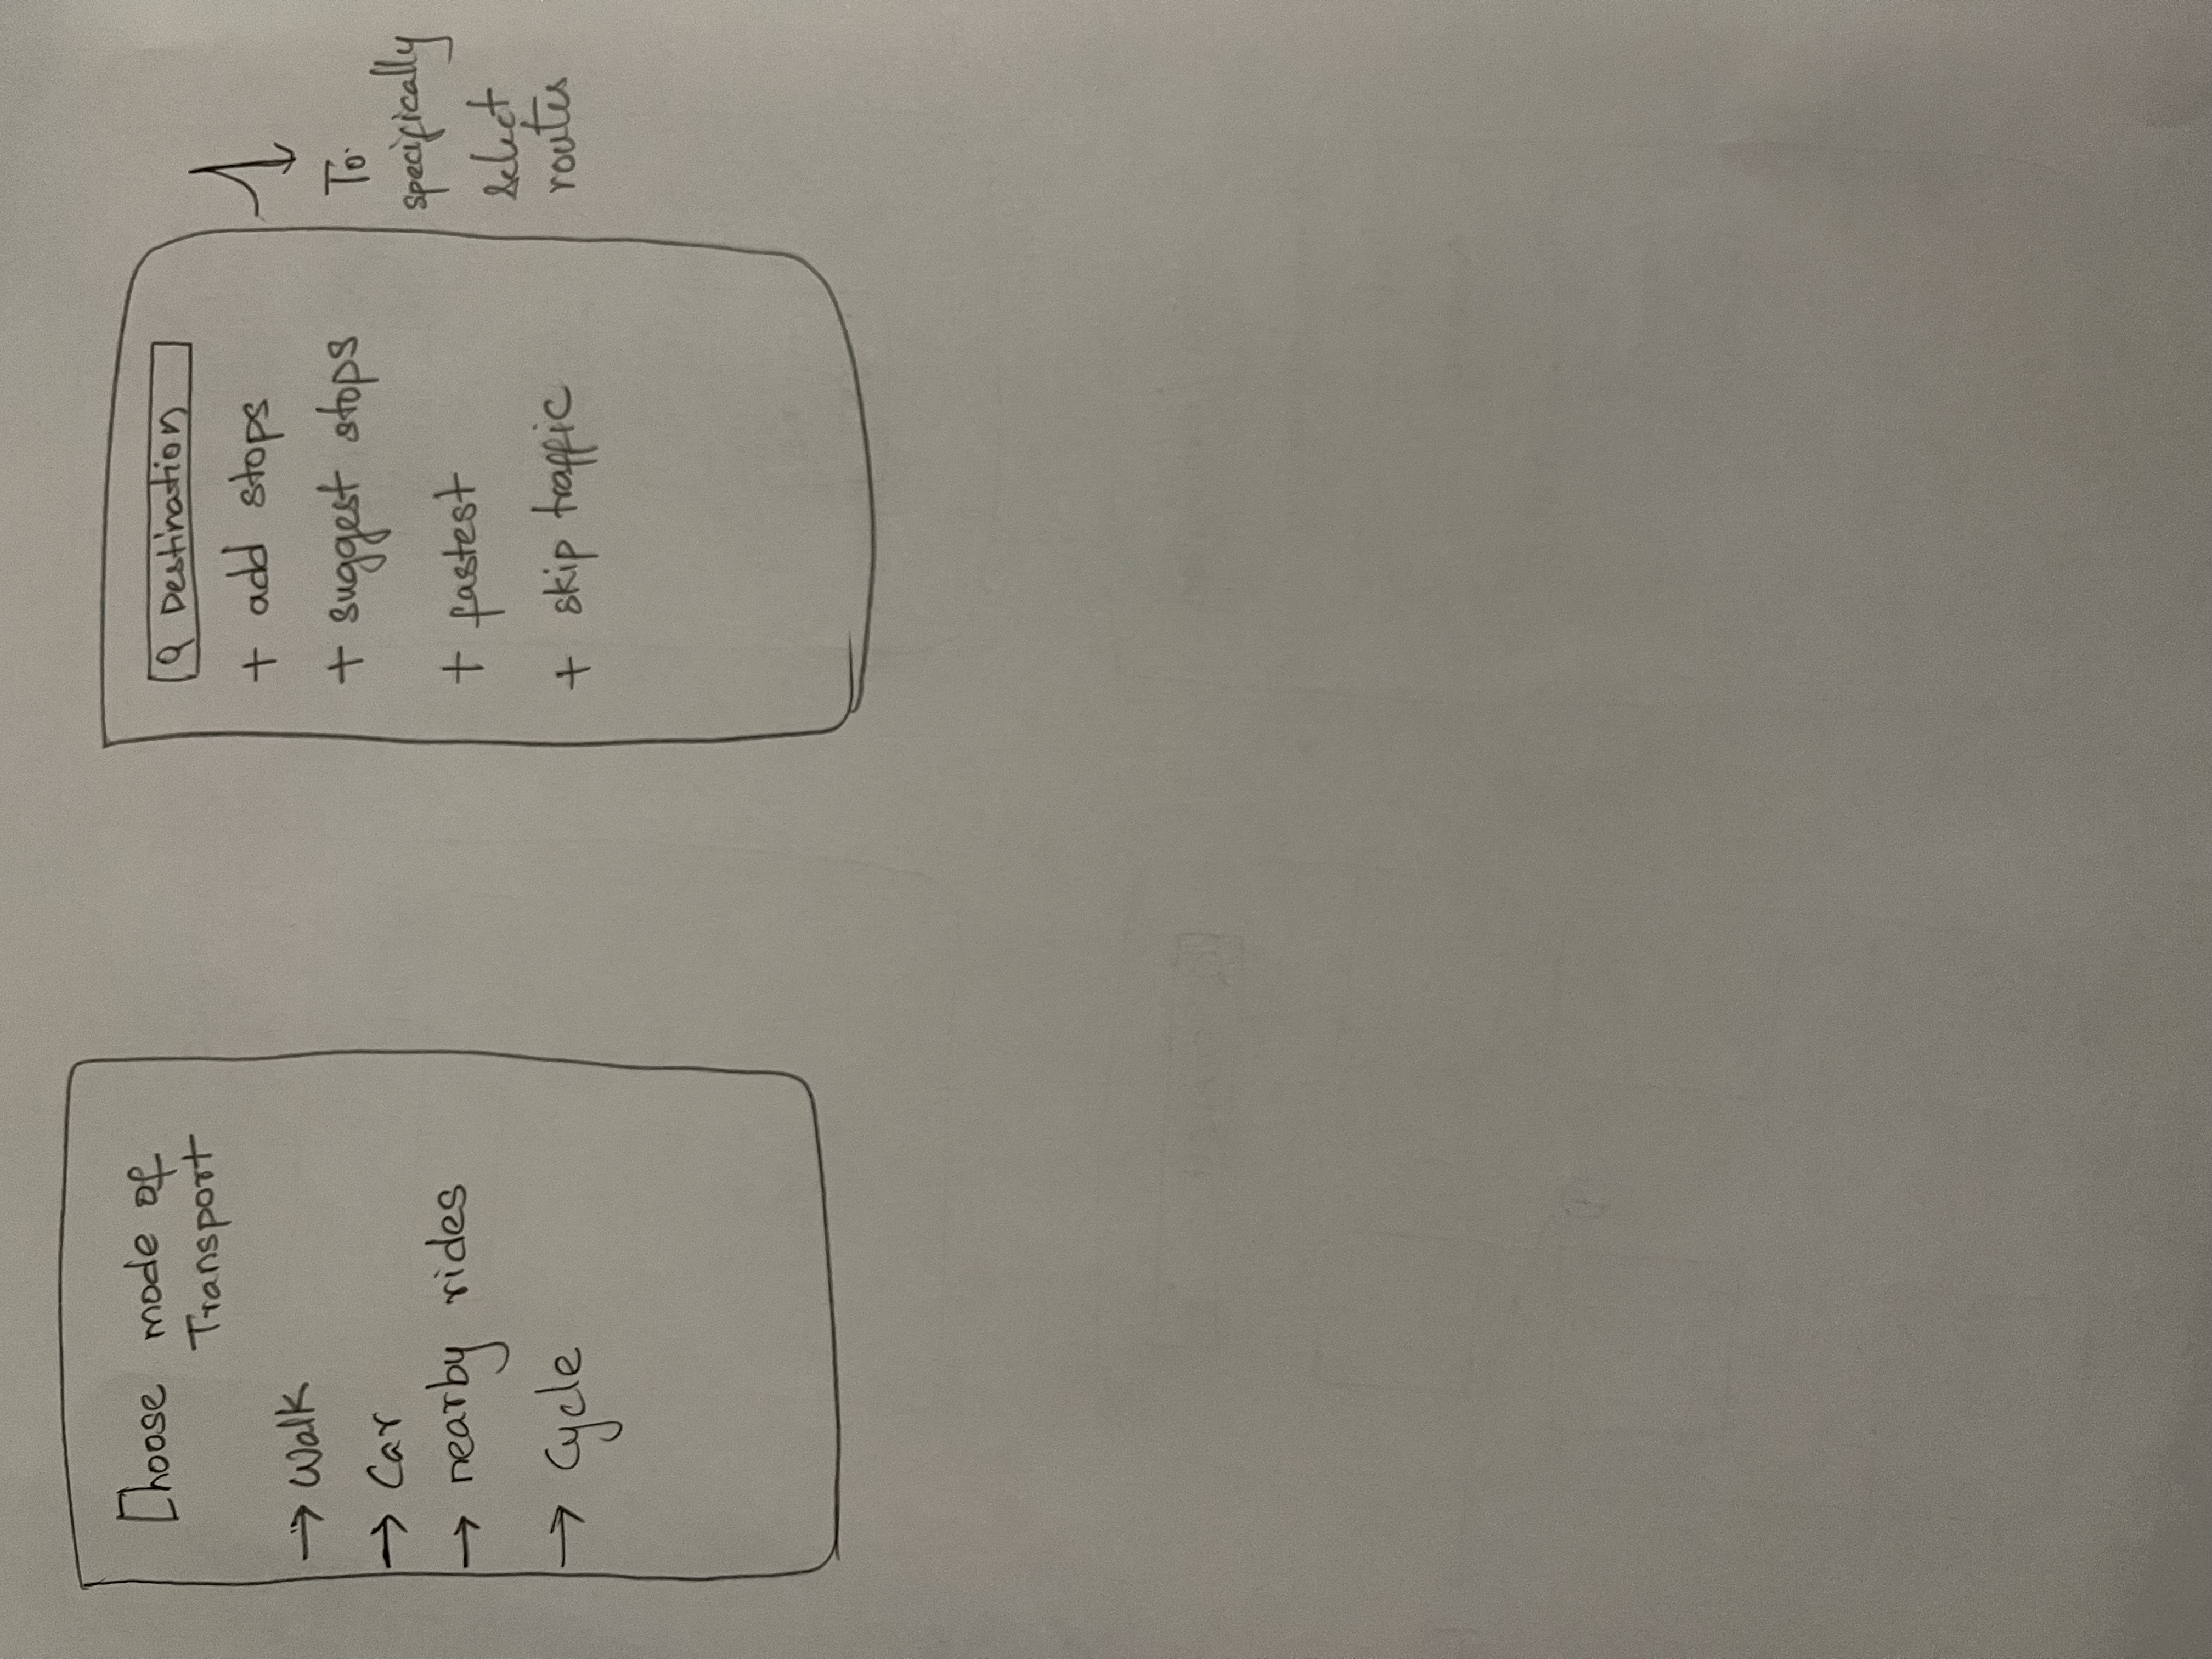 Choose mode of
Transport
→ Walk
→ Car
→ nearby rides
→ Cycle
Destination
+ add stops
+ suggest stops
+ fastest
+ skip traffic
To
specifically
select
routes